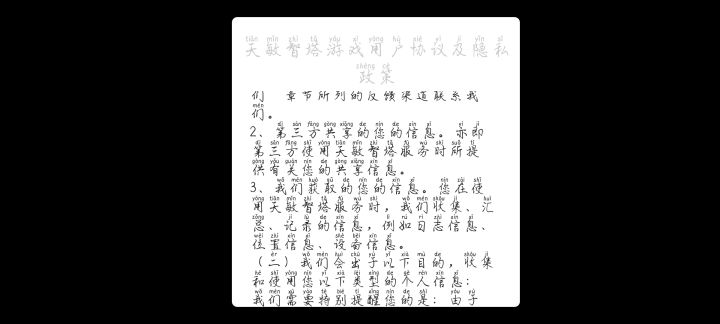 天敏智塔游戏用户协议及隐私
政策
们 章节所列的反馈渠道联系我
们。
2、第三方共享的您的信息。亦即
第三方使用天敏智塔服务时所提
供有关您的共享信息。
3、我们获取的您的信息。您在使
用天敏智塔服务时，我们收集、汇
总、记录的信息，例如日志信息、
位置信息、设备信息。
（二）我们会出于以下目的，收集
和使用您以下类型的个人信息：
我们需要特别提醒您的是：由于